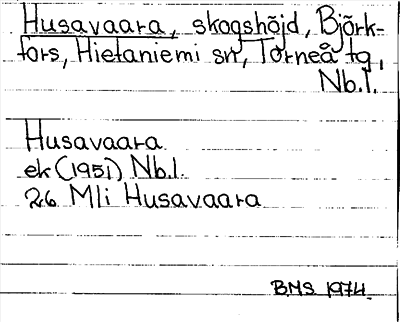 Husavaara, skogshöjd, Björk-
fors, Hietaniemi sn, Torneå tg,
Nb.l.
Husavaara
ek (1951) Nb.l.
26 Mli Husavaara
BMS 1974.